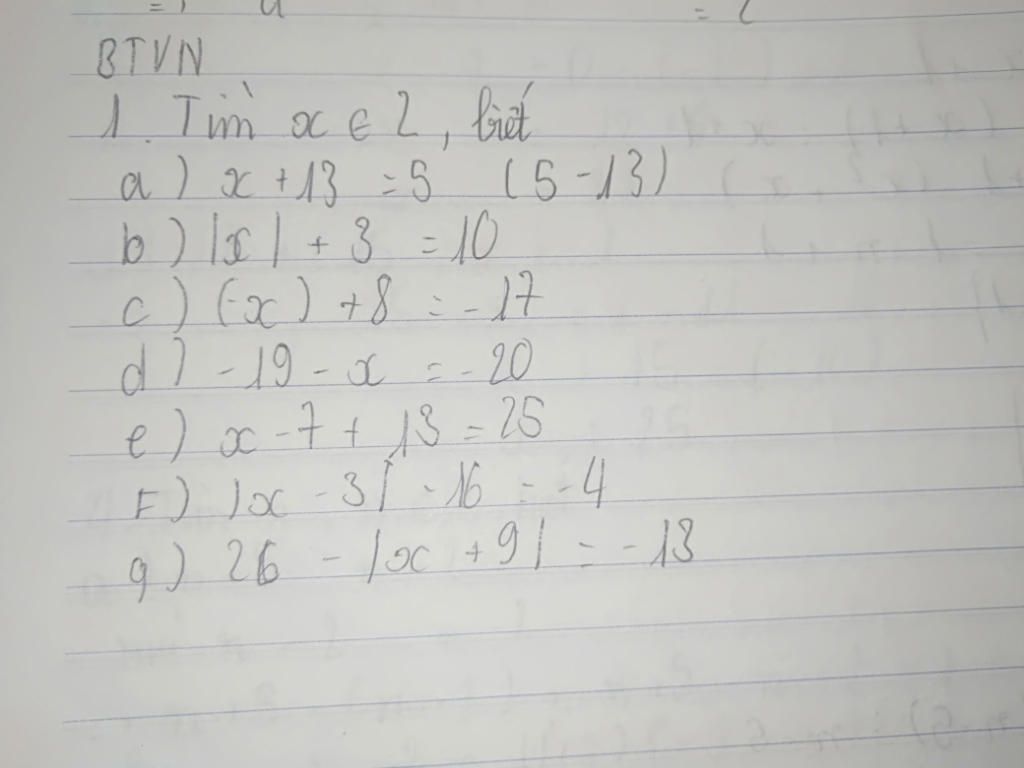 BTVN
1. Tìm x ∈ Z, biết
a) x + 13 = 5 (5 - 13)
b) |x| + 3 = 10
c) (-x) + 8 = -17
d) -19 - x = -20
e) x - 7 + 13 = 25
F) |x - 3| - 16 = -4
g) 26 - |x + 9| = -13